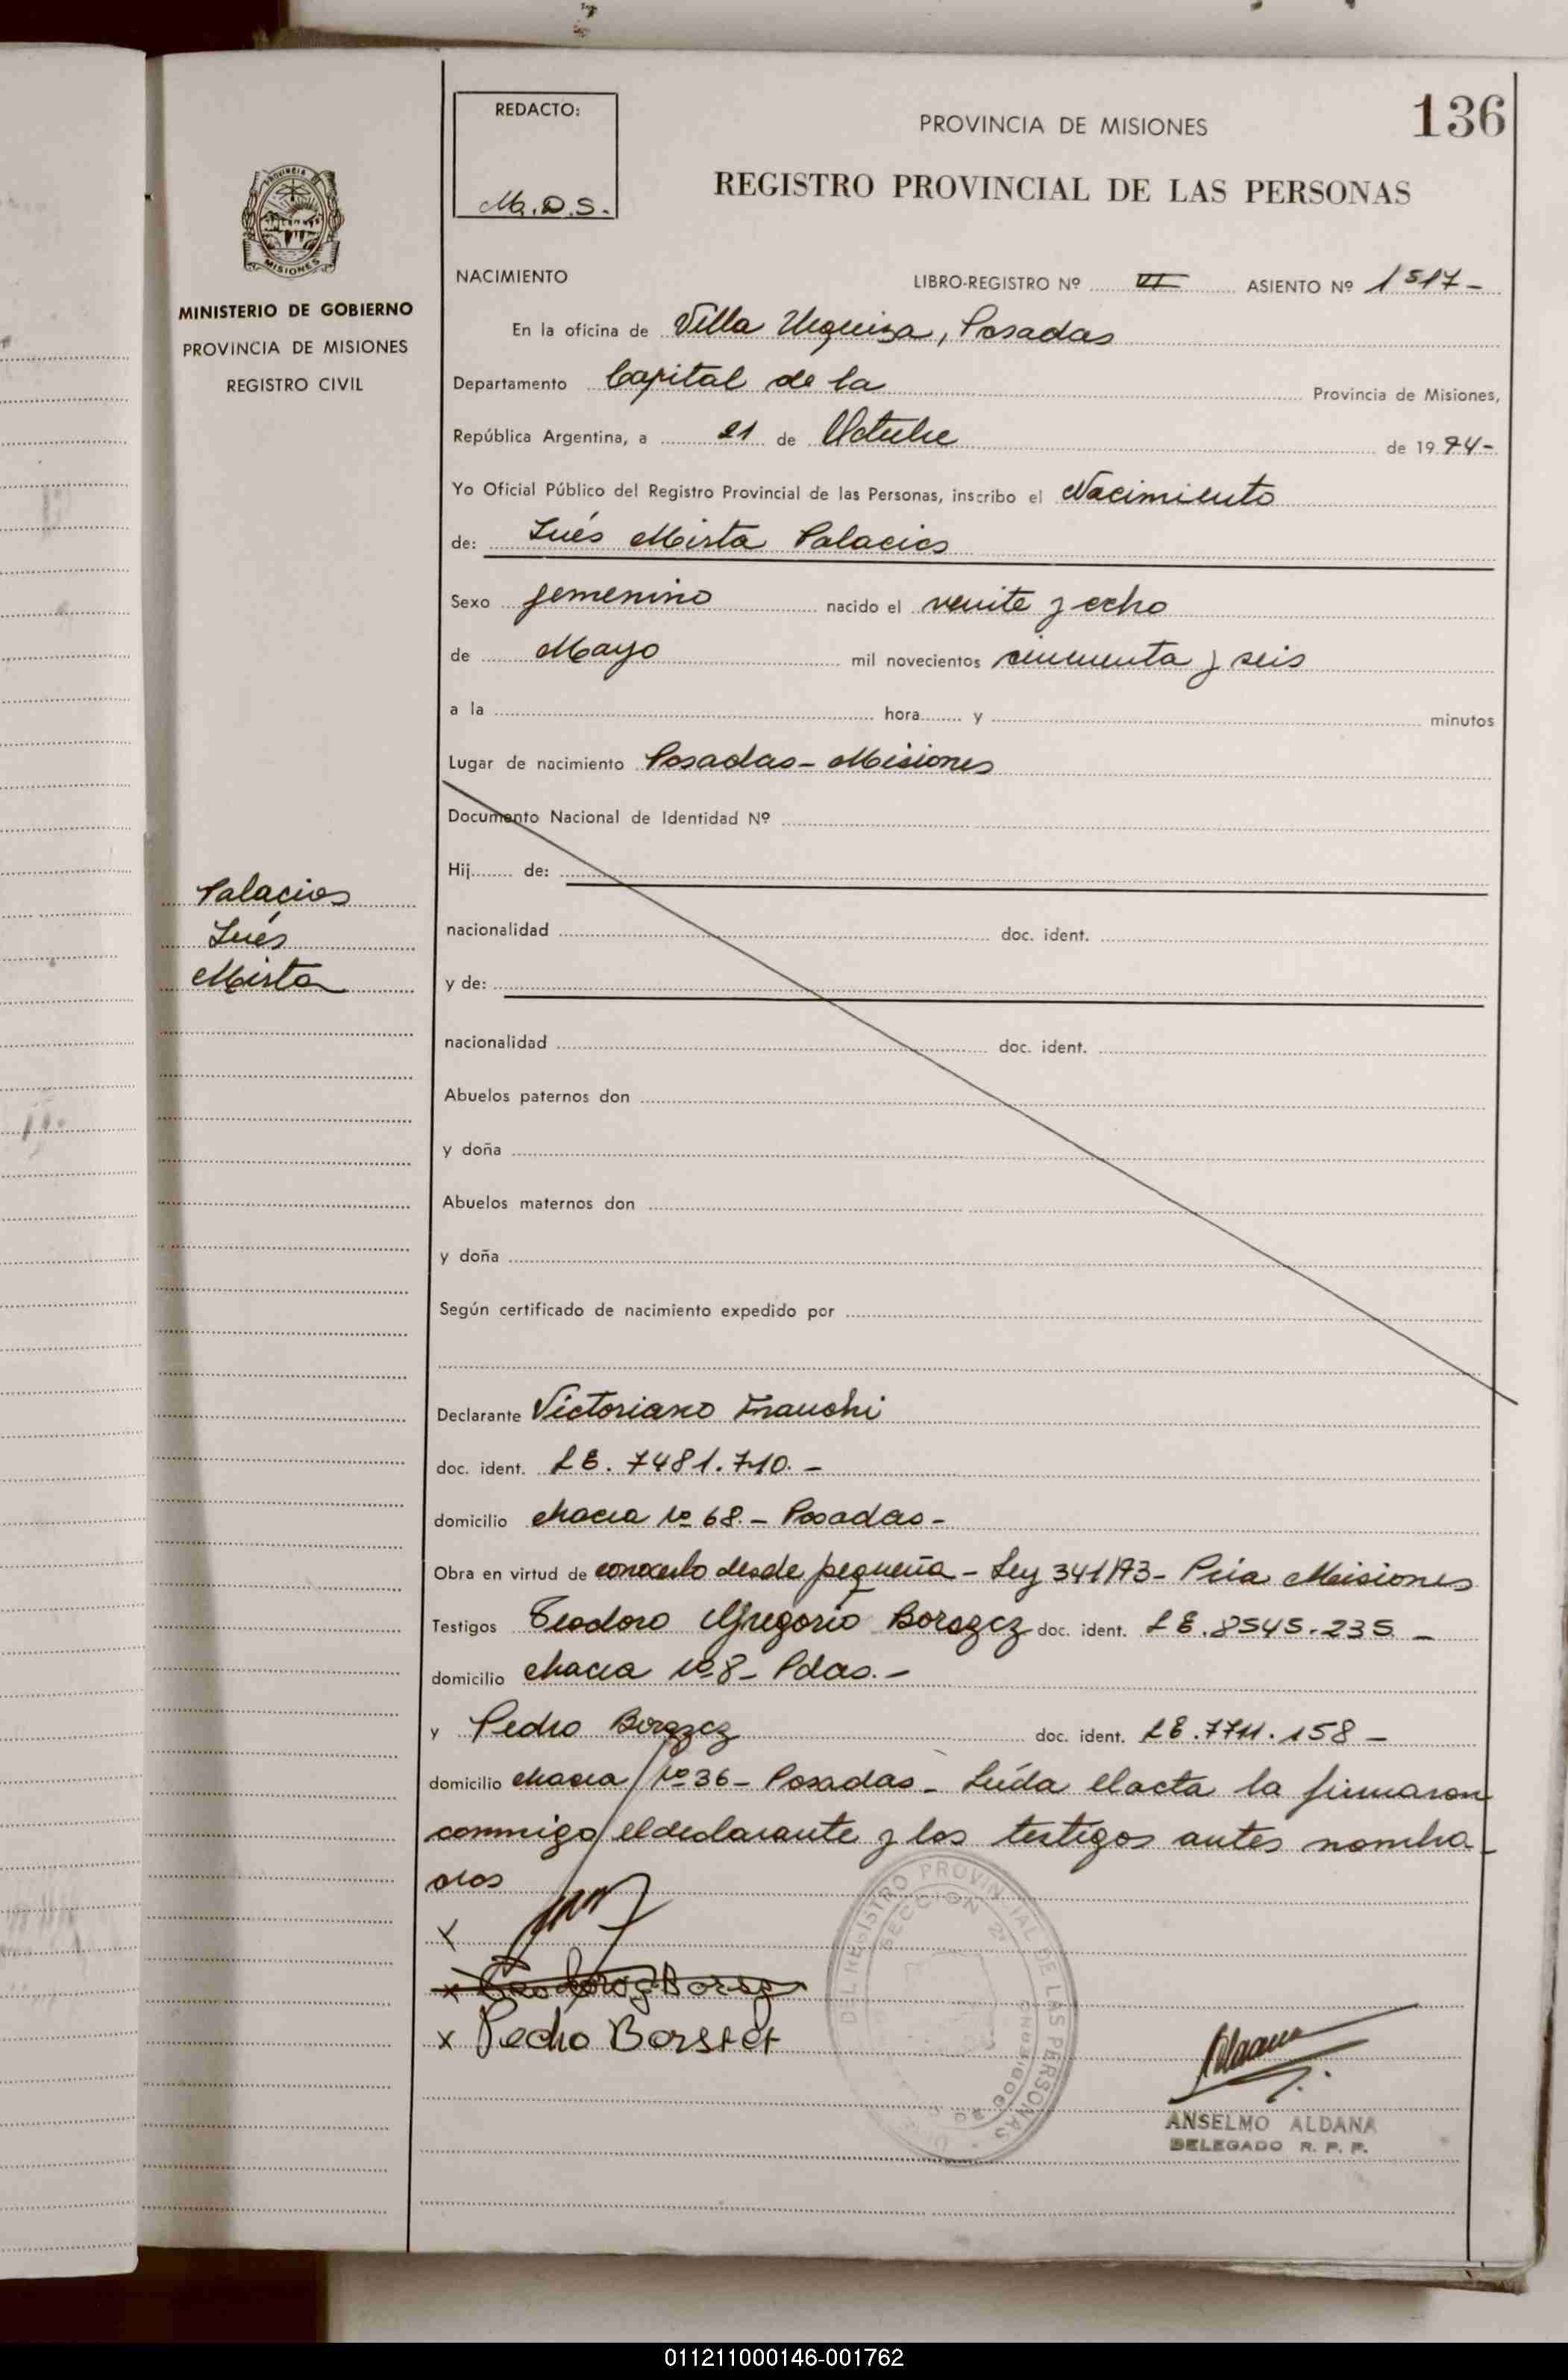 136
REDACTO:
M.D.S.
PROVINCIA DE MISIONES
REGISTRO PROVINCIAL DE LAS PERSONAS
MISIONES
MINISTERIO DE GOBIERNO
PROVINCIA DE MISIONES
REGISTRO CIVIL
Palacios
Inés
Mirta
NACIMIENTO LIBRO-REGISTRO Nº VI ASIENTO Nº 1517-
En la oficina de Villa Urquiza, Posadas
Departamento Capital de la Provincia de Misiones,
República Argentina, a 21 de Octubre de 1974-
Yo Oficial Público del Registro Provincial de las Personas, inscribo el Nacimiento
de: Inés Mirta Palacios
Sexo femenino nacido el veinte y ocho
de Mayo mil novecientos cincuenta y seis
a la hora y minutos
Lugar de nacimiento Posadas- Misiones
Documento Nacional de Identidad Nº
Hij de:
nacionalidad doc. ident.
y de:
nacionalidad doc. ident.
Abuelos paternos don
y doña
Abuelos maternos don
y doña
Según certificado de nacimiento expedido por
Declarante Victoriano Franchi
doc. ident. LE. 7481.710.-
domicilio chacra Nº 68.- Posadas-
Obra en virtud de conocerlo desde pequeña - Ley 341/73- Pcia Misiones
Testigos Teodoro Gregorio Borszcz doc. ident. LE.8545.235.-
domicilio chacra Nº 8- Pdas.-
y Pedro Borszcz doc. ident. LE.7711.158-
domicilio chacra Nº 36- Posadas- Leída el acta la firmaron
conmigo el declarante y los testigos antes nombra-
dos
x
x Teodoro G Borsz
x Pedro Borszcz
DEL REGISTRO PROVINCIAL DE LAS PERSONAS
SECCION 2ª
ANSELMO ALDANA
DELEGADO R. P. P.
011211000146-001762